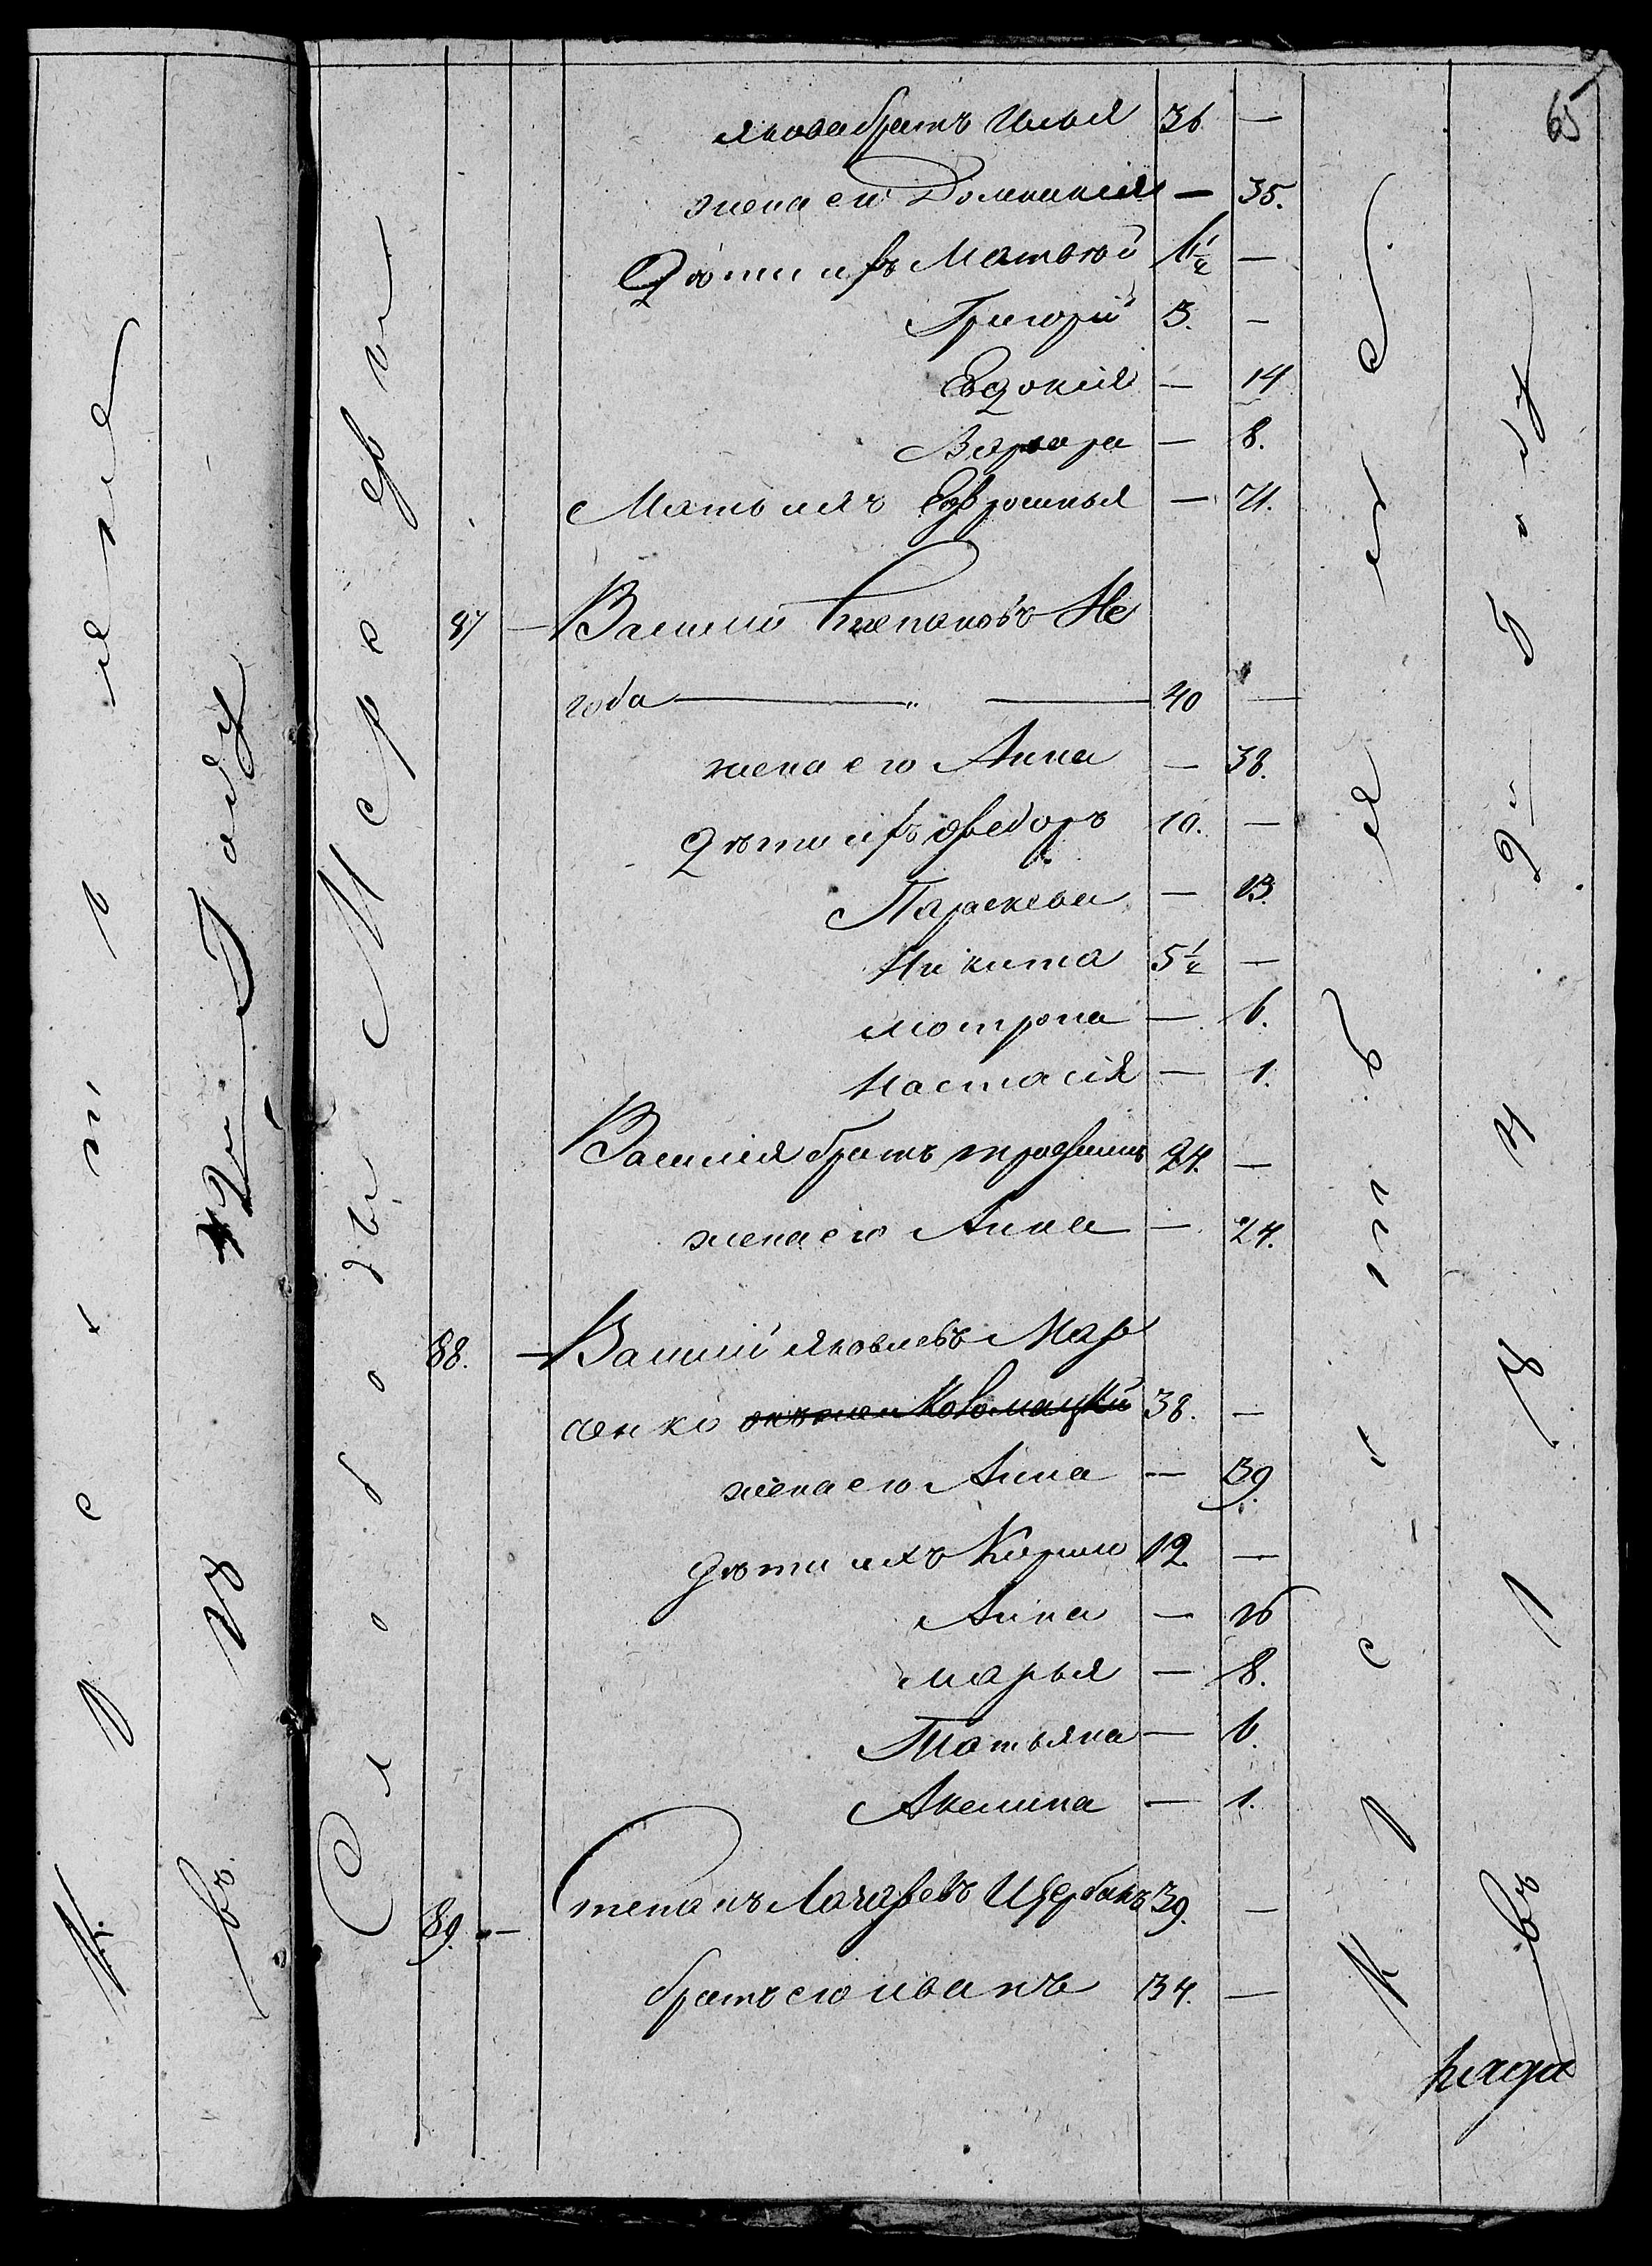 65
Якова братъ Илья 36 —
жена его Домникія — 35.
Дѣти ихъ Матвѣй 6½ —
Григорій 3. —
Евдокия — 14
Варвара — 8.
Мать ихъ Евфросинья — 71.
87 — Василій Степановъ Не
года — „ — 40 —
жена его Анна — 38.
Дѣти ихъ Федоръ 10. —
Параскева — 13.
Никита 5½ —
Мотрона — 6.
Настасія — 1.
Василія братъ Трофимъ 24. —
жена его Анна — 24.
88. — Василій Яковлевъ Мар
ченко 38. —
жена его Анна — 39.
дѣти ихъ Кирило 12 —
Анна — 16
Марья — 8.
Татьяна — 6.
Акелина — 1.
89. — Степанъ Лазаревъ Щербакъ 39.
братъ его Иванъ 34. —
Слободы Мерефы
въ 18
Году
въ 18
2м Году